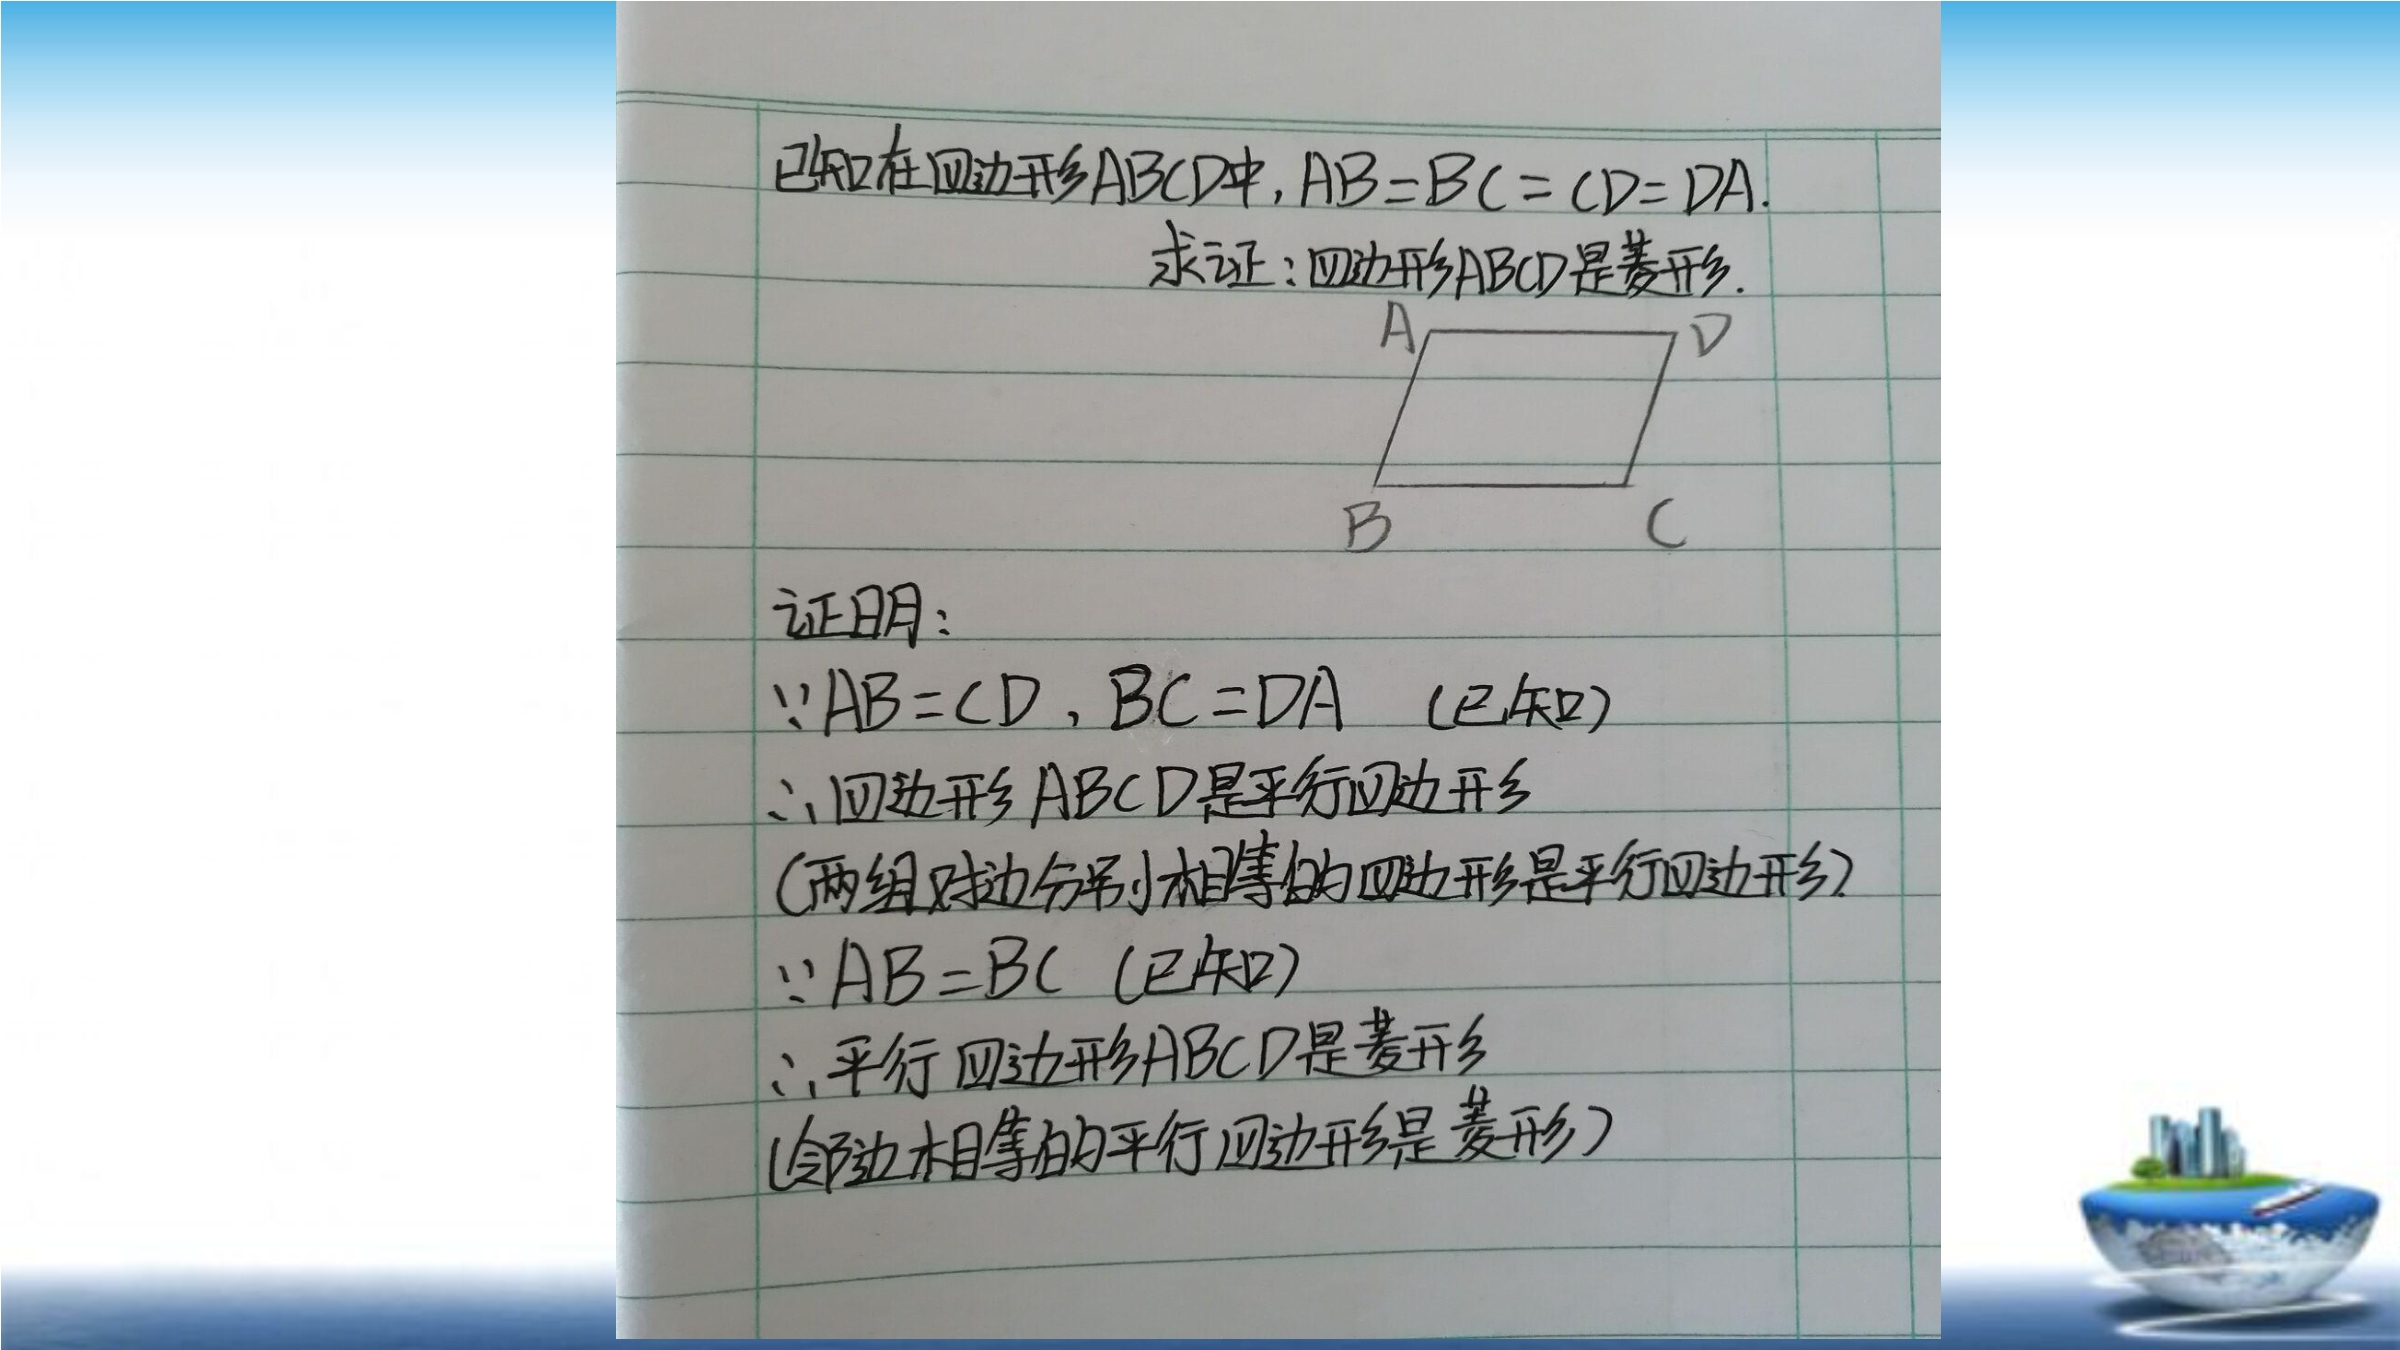 已知在四边形ABCD中,AB=BC=CD=DA.
求证:四边形ABCD是菱形.
A D
B C
证明:
∵AB=CD,BC=DA (已知)
∴四边形ABCD是平行四边形
(两组对边分别相等的四边形是平行四边形)
∵AB=BC (已知)
∴平行四边形ABCD是菱形
(邻边相等的平行四边形是菱形)